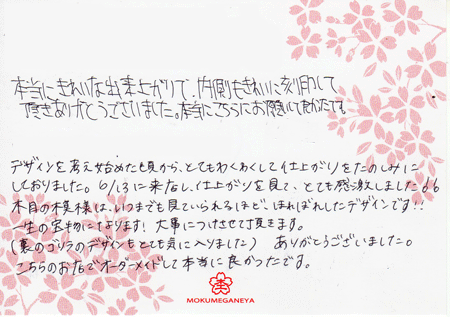 本当にきれいな出来上がりで、内側もきれいに刻印して
頂きありがとうございました。本当にこちらにお願いして良かったです。
デザインを考え始めた頃から、とてもわくわくして仕上がりをたのしみに
しておりました。6/13に来店し、仕上がりを見て、とても感激しました
木目の模様は、いつまでも見ていられるほど、ほれぼれしたデザインです!!
一生の宝物になります! 大事につけさせて頂きます。
(裏のゴリラのデザインもとても気に入りました) ありがとうございました。
こちらのお店でオーダーメイドして本当に良かったです。
MOKUMEGANEYA